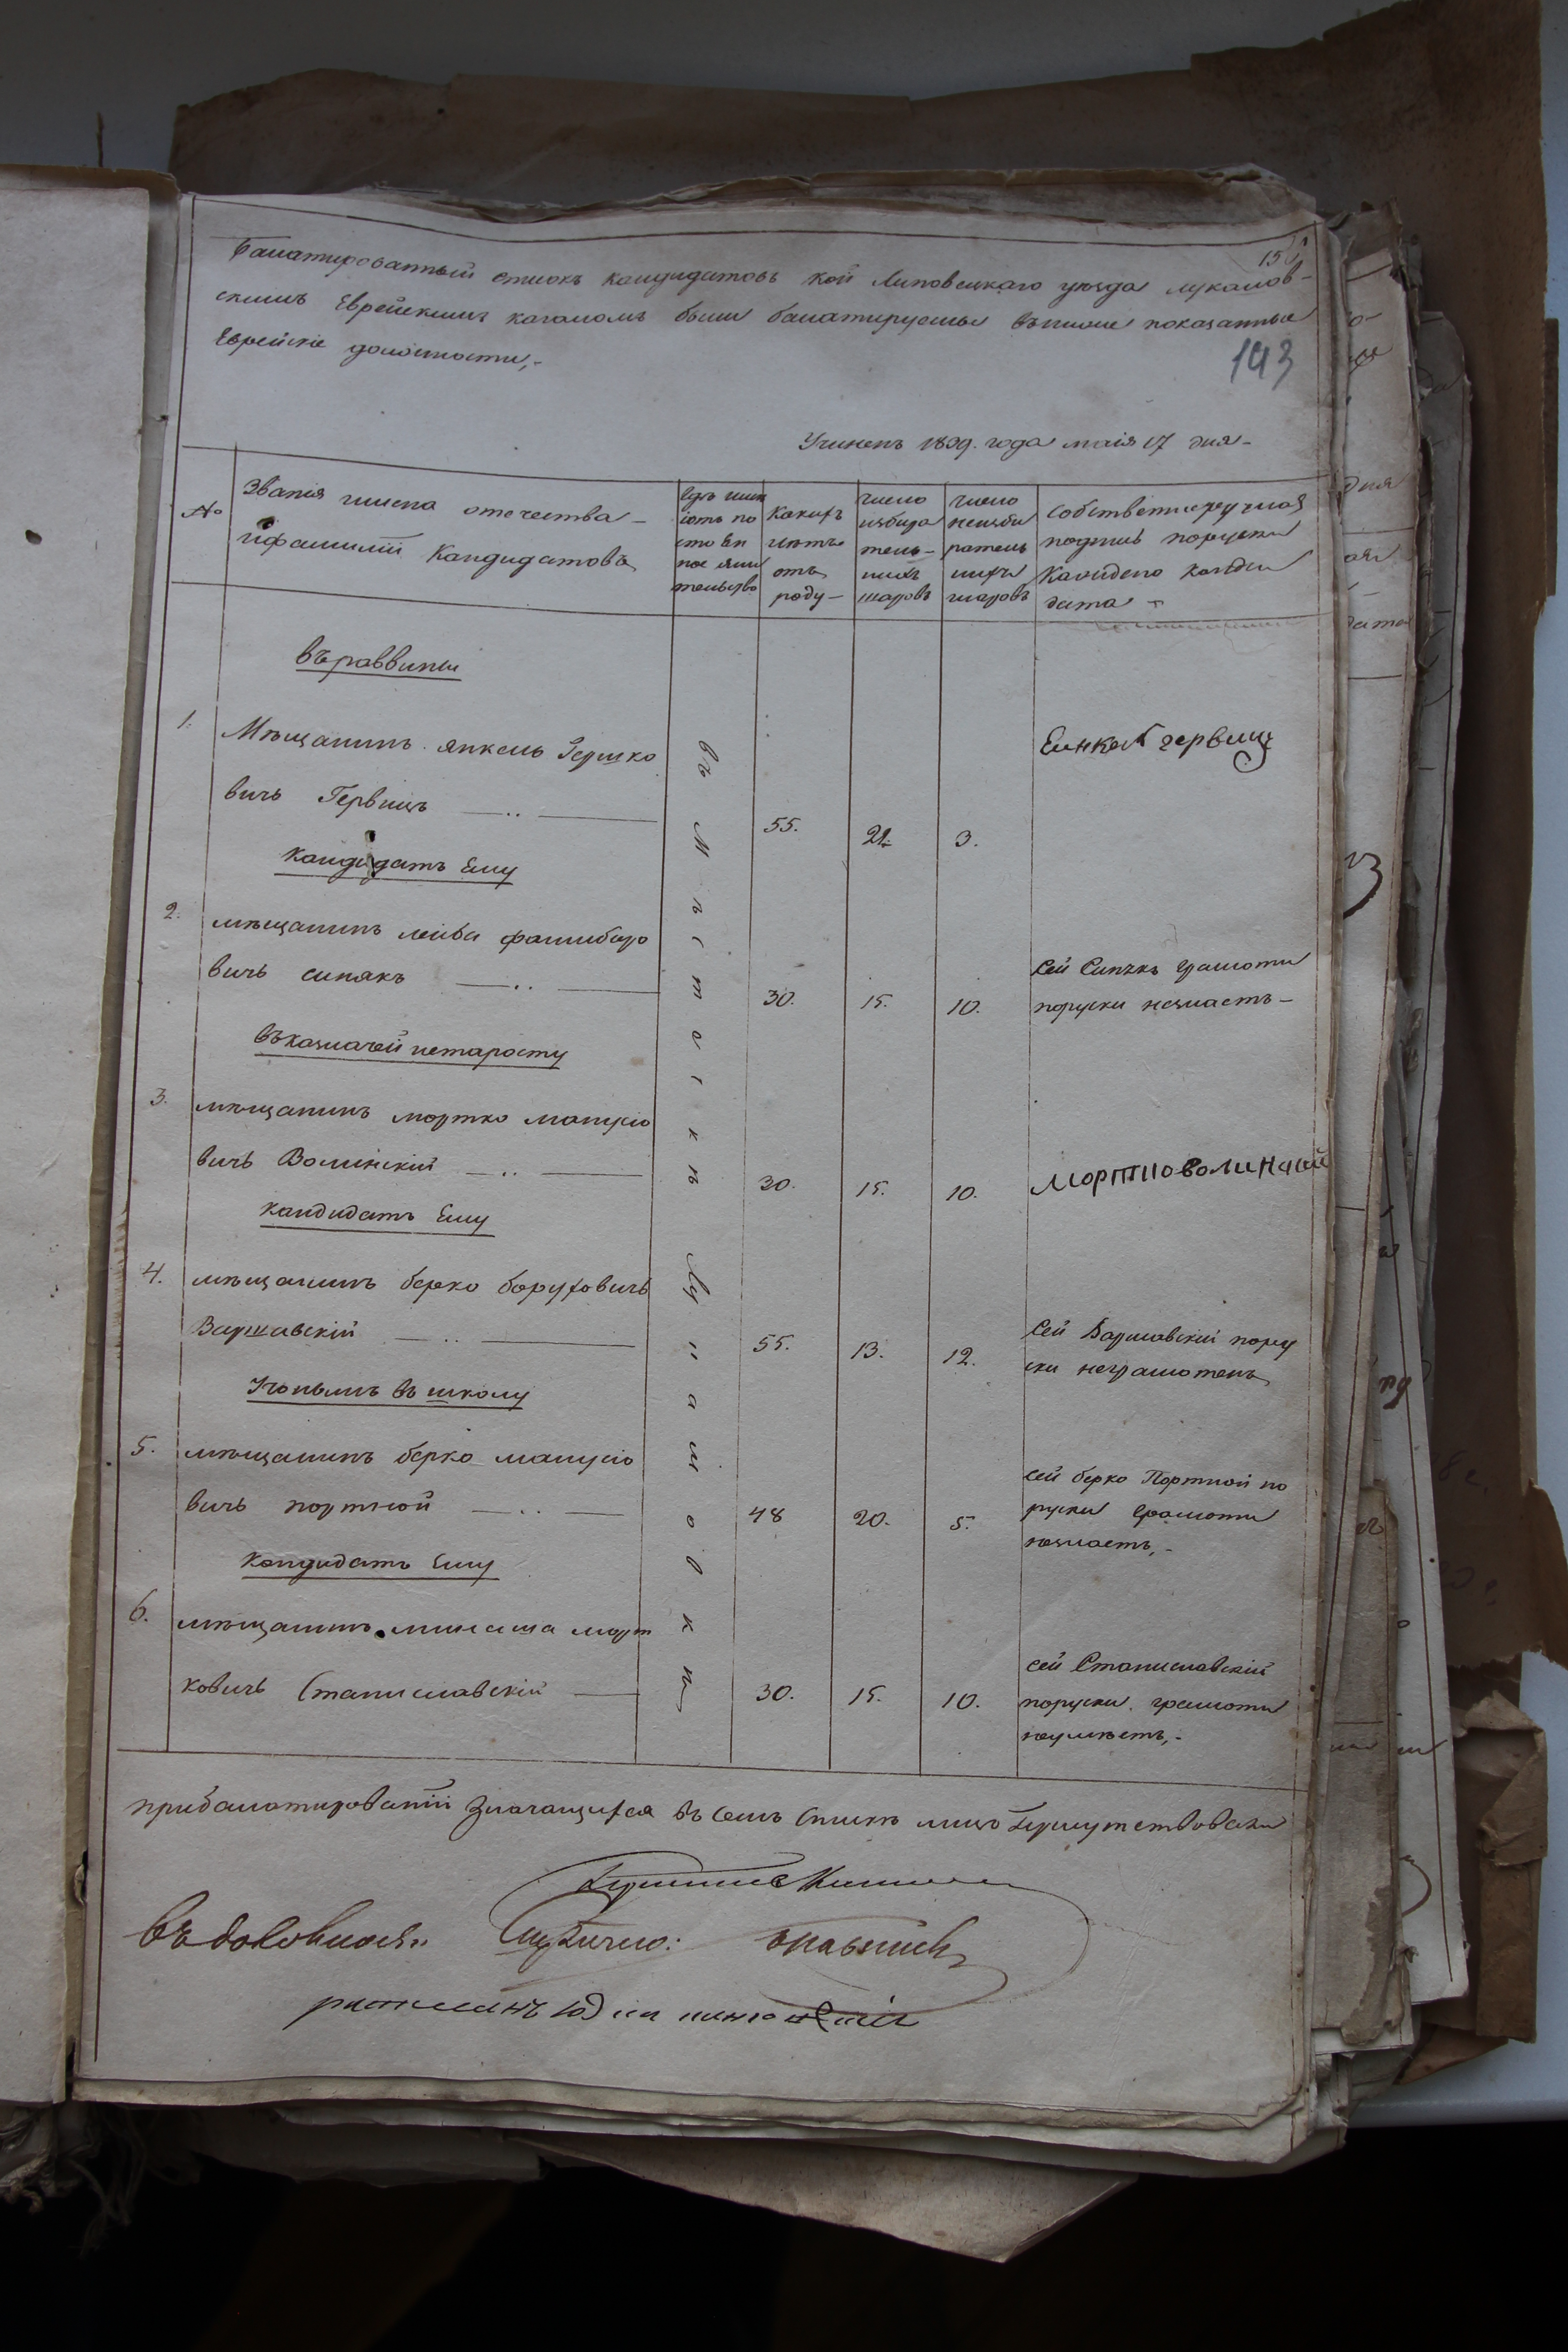 150
Балатированный списокъ кандидатовъ кои Липовецкаго уезда лукашов-
скимъ Еврейскимъ кагаломъ были балатируемы въниже показанные
Еврейскіе должности,-
193
Учиненъ 1839. года маія 17 дня-
№
Званія имена отечества-
ифамилій Кандидатовъ
гдѣ имѣ
ютъ по
стоян
ное жи
тельство
Какихъ
летъ
отъ
роду-
число
избира
тель-
ныхъ
шаровъ
число
неизби
ратель
ныхъ
шаровъ
собственноручная
подпись поруски
Каждого канди
дата-
въраввины
1.
Мѣщанинъ янкель Гершко
вичь Гервицъ
55.
21.
3.
Еинкел гервиц
кандидатъ Ему
2.
мѣщанинъ лейба
вичь синякъ
30.
15.
10.
Сей Синякъ грамоти
поруски незнаетъ-
въказначей истаросту
3.
мѣщанинъ мортко мануило
вичь Волинскій
30.
15.
10.
мортко волинский
кандидатъ Ему
4.
мѣщанинъ берко боруховичь
Варшавскій
55.
13.
12.
Сей Варшавскій пору
ски неграмотенъ
Ученымъ въ школу
5.
мѣщанинъ берко
вичь портной
48
20.
5.
сей берко Портной по
руски грамоти
незнаетъ,-
кандидатъ Ему
6.
мѣщанинъ минаша морт
ковичь Станиславскій
30.
15.
10.
сей Станиславскій
поруски грамоти
неумѣетъ,-
въ мѣстечкѣ Лукашовкѣ
прибалатированіи значащихся въ семъ спискѣ лицъ присутствовали